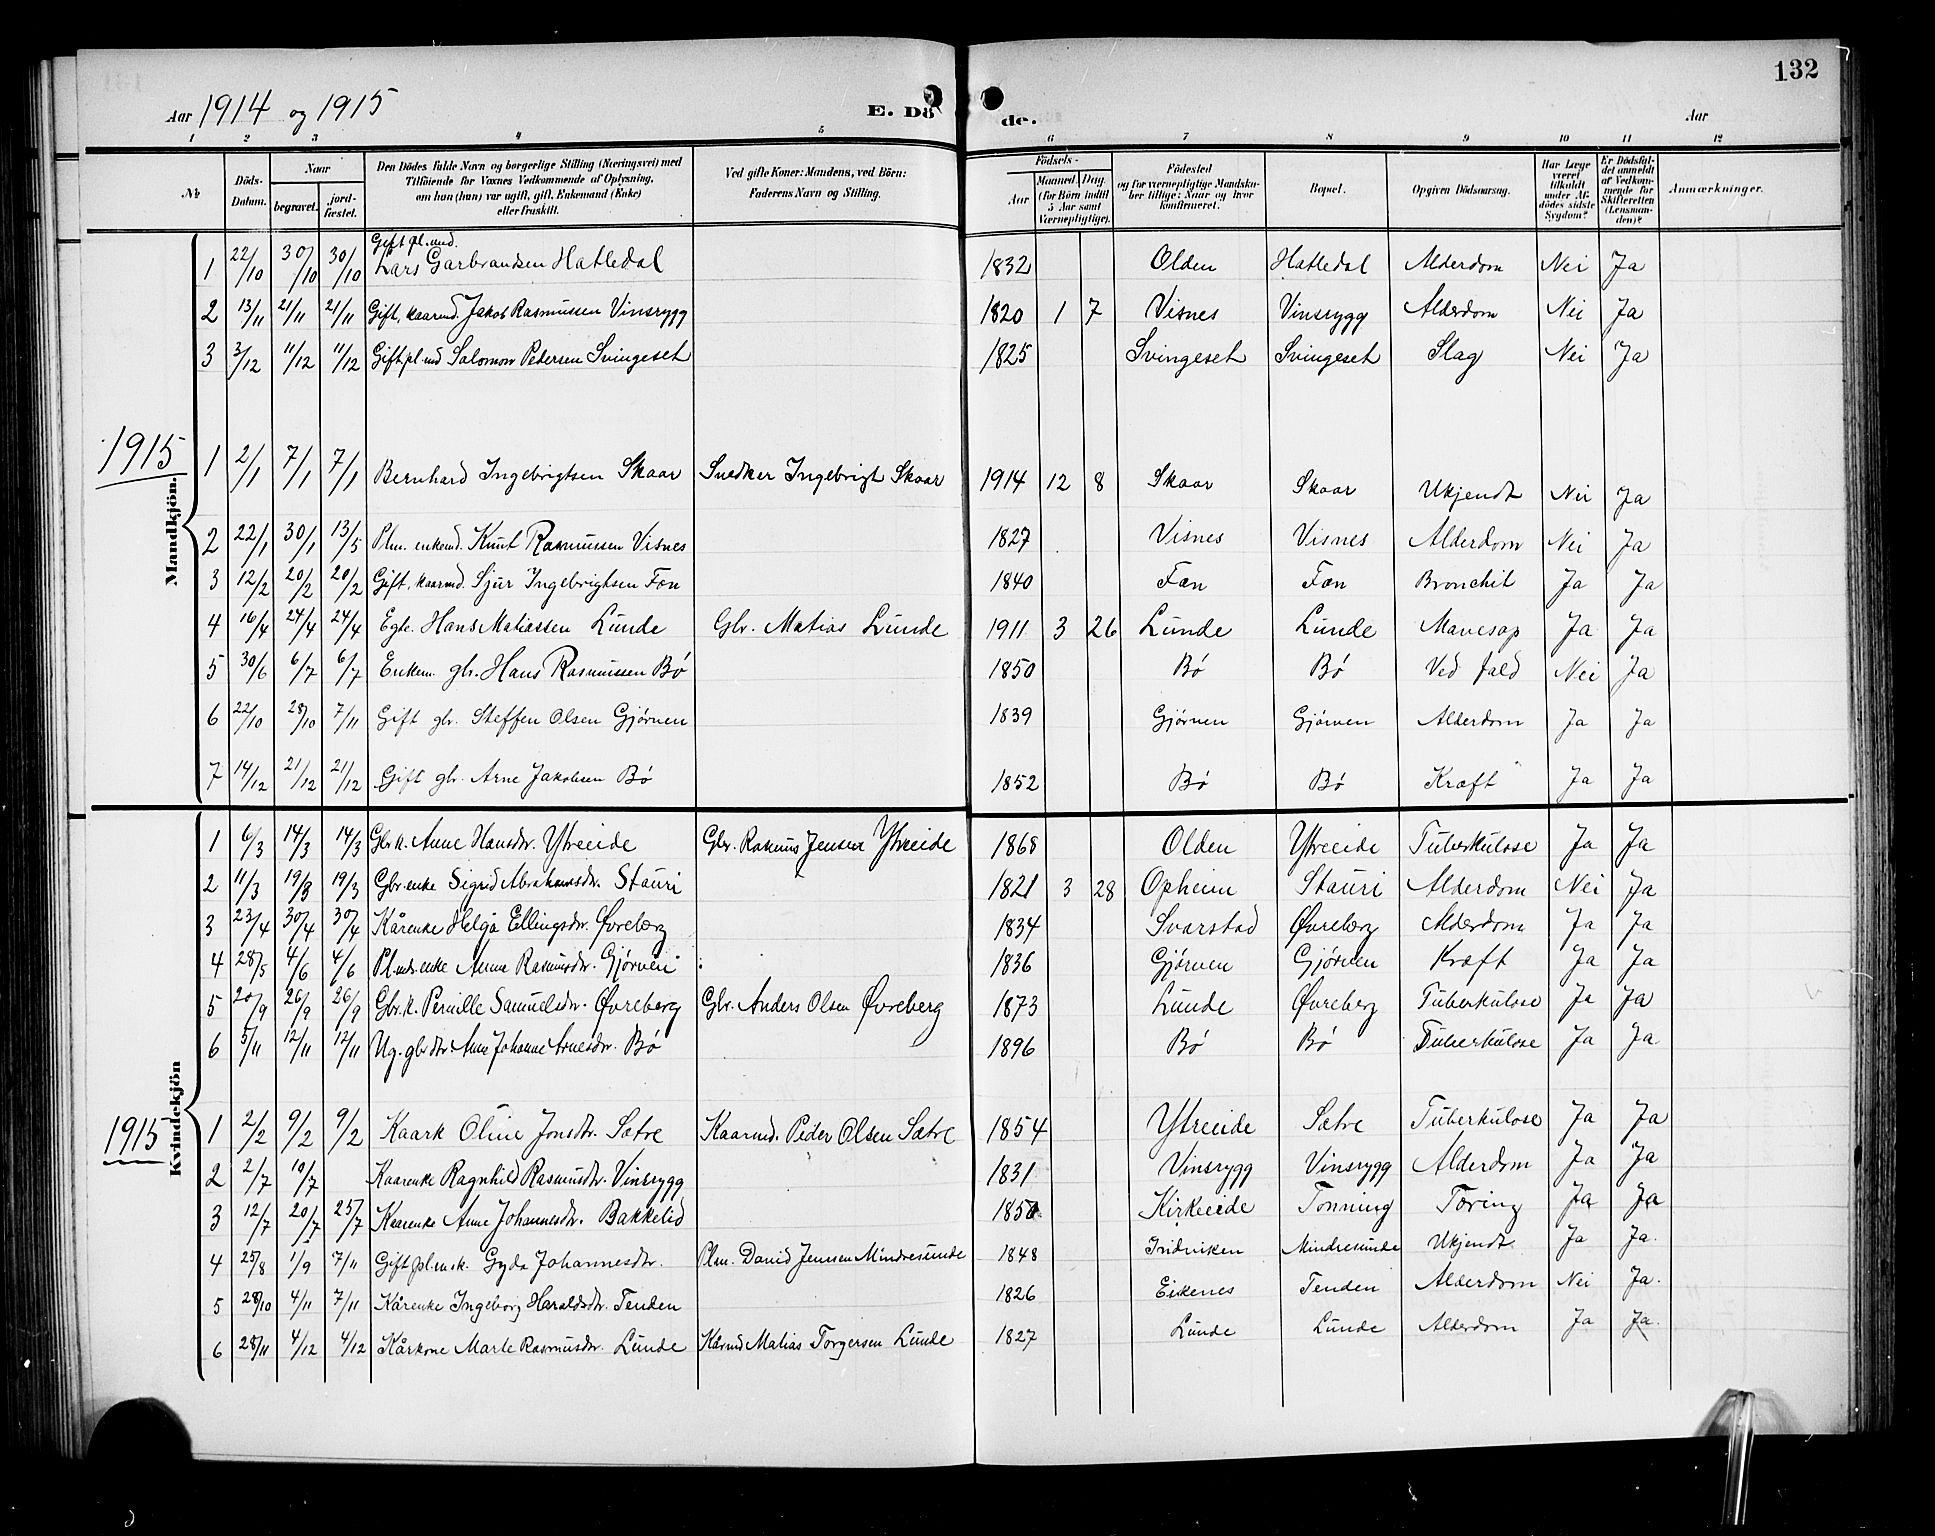 132
Aar 1914 og 1915 E. Dö de. Aar
1 2 3 4 5 6 7 8 9 10 11 12
№ Döds-Datum. Naar begravet. jordfæstet. Den Dödes fulde Navn og borgerlige Stilling (Næringsvei) med Tilföiende for Voxnes Vedkommende af Oplysning, om han (hun) var ugift, gift, Enkemand (Enke) eller fraskilt. Ved gifte Koner: Mandens, ved Börn: Faderens Navn og Stilling. Födsels- Aar Maaned. Dag. (for Börn indtil 5 Aar samt Værnepligtige). Födested og for værnepligtige Mandskaber tillige: Naar og hvor konfirmeret. Bopæl. Opgiven Dödsaarsag. Har Læge været tilkaldt under Afdödes sidste Sygdom? Er Dödsfaldet anmeldt af Vedkommende for Skifteretten (Lensmanden)? Anmærkninger.
Mandkjön.
1 22/10 30/10 30/10 Gift pl.md. Lars Garbrandsen Hatledal 1832 Olden Hatledal Alderdom Nei Ja
2 13/11 21/11 21/11 Gift, kaarmd. Jakob Rasmussen Vinsrygg 1820 1 7 Visnes Vinsrygg Alderdom Nei Ja
3 3/12 11/12 11/12 Gift pl.md Salomon Pedersen Svingeset 1825 Svingeset Svingeset Slag Nei Ja
1915
1 2/1 7/1 7/1 Bernhard Ingebrigtsen Skaar Snedker Ingebrigt Skaar 1914 12 8 Skaar Skaar Ukjendt Nei Ja
2 22/1 30/1 13/5 Plm. enkemd. Knut Rasmussen Visnes 1827 Visnes Visnes Alderdom Nei Ja
3 12/2 20/2 20/2 Gift, kaarmd. Sjur Ingebrigtsen Fæn 1840 Fæn Fæn Bronchit Ja Ja
4 16/4 24/4 24/4 Egte. Hans Matiassen Lunde Gbr. Matias Lunde 1911 3 26 Lunde Lunde Mavesap Ja Ja
5 30/6 6/7 6/7 Enkem. gbr. Hans Rasmussen Bø 1850 Bø Bø Ved fald Nei Ja
6 22/10 28/10 7/11 Gift gbr. Steffen Olsen Gjørven 1839 Gjørven Gjørven Alderdom Ja Ja
7 14/12 21/12 21/12 Gift gbr. Arne Jakobsen Bø 1852 Bø Bø Kræft Ja Ja
Kvindekjön
1 6/3 14/3 14/3 Gbr.k. Anne Hansdtr. Ytreeide Gbr. Rasmus Jensen Ytreeide 1868 Olden Ytreeide Tuberkulose Ja Ja
2 11/3 19/3 19/3 Gbr.enke Sigrid Abrahamsdtr. Stauri 1821 3 28 Opheim Stauri Alderdom Nei Ja
3 23/4 30/4 30/4 Kårenke Helga Ellingsdtr. Øvreberg 1834 Svarstad Øvreberg Alderdom Ja Ja
4 28/5 4/6 4/6 Pl.mds.enke Anna Rasmusdtr. Gjørven 1836 Gjørven Gjørven Kræft Ja Ja
5 20/9 26/9 26/9 Gbr.k. Pernille Samuelsdtr. Øvreberg Gbr. Anders Olsen Øvreberg 1873 Lunde Øvreberg Tuberkulose Ja Ja
6 5/11 12/11 12/11 Ug. gbr.dtr. Anne Johanne Arnesdtr. Bø 1896 Bø Bø Tuberkulose Ja Ja
1915
1 2/2 9/2 9/2 Kaark Oline Jonsdtr. Sætre Kaarmd. Peder Olsen Sætre 1854 Ytreeide Sætre Tuberkulose Ja Ja
2 2/7 10/7 Kaarenke Ragnhild Rasmusdtr. Vinsrygg 1831 Vinsrygg Vinsrygg Alderdom Ja Ja
3 12/7 20/7 25/7 Kaarenke Anne Johannesdtr. Bakkelid Kirkeeide Tonning Tæring Ja Ja
4 25/8 1/9 7/11 Gift pl.m.k. Gyda Johannesdtr. Plm. David Jensen Mindresunde 1848 Indviken Mindresunde Ukjendt Ja Ja.
5 28/10 4/11 7/11 Kårenke Ingeborg Haraldsdtr. Tenden 1826 Eikenes Tenden Alderdom Nei Ja.
6 28/11 4/12 4/12 Kårkone Marte Rasmusdtr. Lunde Kårmd Matias Torgersen Lunde 1827 Lunde Lunde Alderdom Ja Ja.